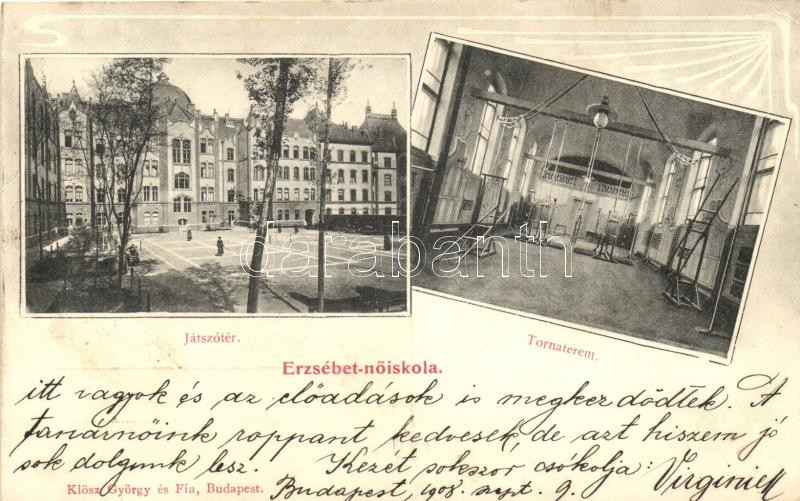 Játszótér.
Tornaterem.
darabanth
Erzsébet-nőiskola.
itt vagyok és az előadások is megkezdődtek. A
tanárnőink roppant kedvesek, de azt hiszem jó
sok dolgunk lesz. Kezét sokszor csókolja: Virginie
Klösz György és Fia, Budapest. Budapest, 1908. sept. 9.